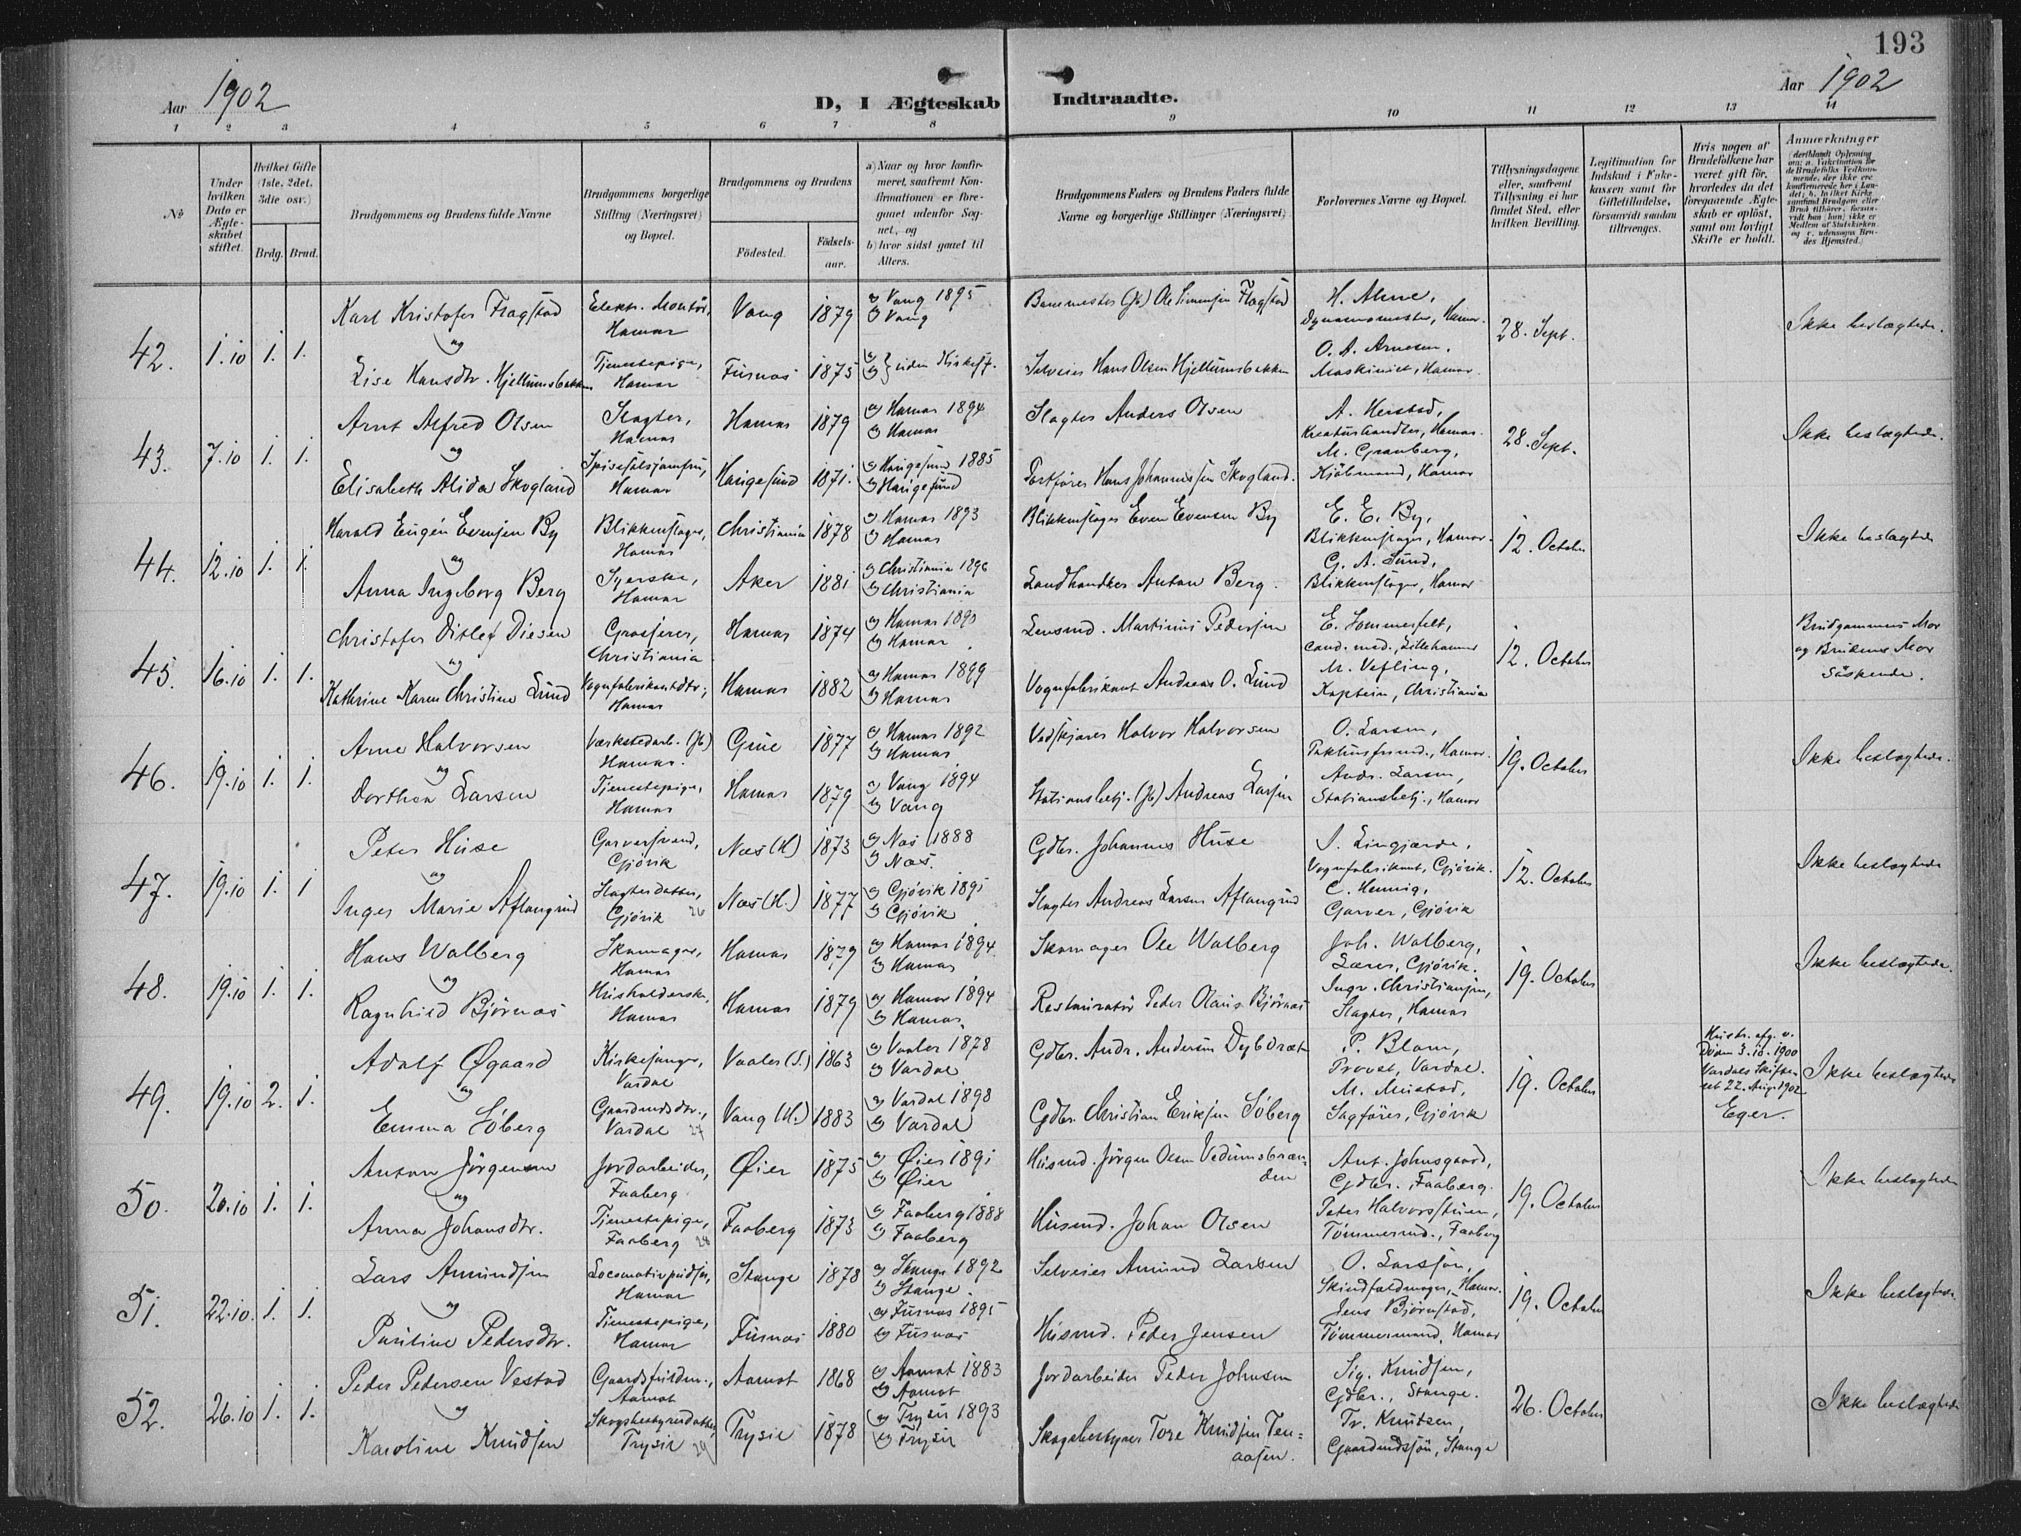 193
Aar 1902
D, I Ægteskab Indtraadte.
Aar 1902
1 2 3 4 5 6 7 8 9 10 11 12 13 14
No
Under hvilken Dato er Ægteskabet stiftet.
Hvilket Gifte (1ste, 2det, 3die osv.)
Brdg. Brud.
Brudgommens og Brudens fulde Navne
Brudgommens borgerlige Stilling (Næringsvei) og Bopæl.
Brudgommens og Brudens
Fødested.
Fødselsaar.
a) Naar og hvor konfirmeret, saafremt Konfirmationen er foregaaet udenfor Sognet, og
b) hvor sidst gaaet til Alters.
Brudgommens Faders og Brudens Faders fulde Navne og borgerlige Stillinger (Næringsvei)
Forlovernes Navne og Bopæl.
Tillysningsdagene eller, saafremt Tillysning ei har fundet Sted, efter hvilken Bevilling.
Legitimation for Indskud i Enkekassen samt for Giftetilladelse, forsaavidt saadan tiltrænges.
Hvis nogen af Brudefolkene har været gift før, hvorledes da det foregaaende Ægteskab er opløst, samt om lovligt Skifte er holdt.
Anmærkninger
42. 1.10 1. 1.
Karl Kristofer Flagstad
Elektr. Montør, Hamar
Vang 1879
a) Vang 1895
b) Vang
Banemester (Jb) Ole Simensen Flagstad
H. Alme,
Dynamomester, Hamar.
28. Sept.
Ikke beslægtede.
og
Lise Hansdtr. Hjellumsbakken
Tjenestepige, Hamar
Furnæs 1875
a) b) } uden Kirkeff.
Selveier Hans Olsen Hjellumsbakken
O. A. Arnesen,
Maskinist, Hamar
43. 7.10 1. 1.
Arnt Alfred Olsen
Slagter, Hamar
Hamar 1879
a) Hamar 1894
b) Hamar
Slagter Anders Olsen
A. Herstad,
Kreaturhandler, Hamar.
28. Sept.
Ikke beslægtede.
og
Elisabeth Alida Skogland
Spisesalsjomfru, Hamar
Haugesund 1871.
a) Haugesund 1885
b) Haugesund
Fartfører Hans Johannessen Skogland.
M. Granberg,
Kjøbmand, Hamar
44. 12.10 1. 1.
Harald Eugén Evensen By
Blikkenslager, Hamar
Christiania 1878
a) Hamar 1893
b) Hamar
Blikkenslager Even Evensen By
E. E. By,
Blikkenslager, Hamar.
12. October
Ikke beslægtede
og
Anna Ingeborg Berg
Syerske, Hamar
Aker 1881
a) Christiania 1896
b) Christiania
Landhandler Anton Berg.
G. A. Lund,
Blikkenslager, Hamar
45. 16.10 1. 1.
Christofer Ditlef Diesen
Grosserer, Christiania
Hamar 1874
a) Hamar 1890
b) Hamar
Lensmd. Martinius Pedersen
E. Sommerfelt,
cand. med., Lillehammer
12. October
Brudgommens Mor og Brudens Mor Søskende.
og
Kathrine Karen Christine Lund
Vognfabrikantdtr, Hamar
Hamar 1882
a) Hamar 1899
b) Hamar
Vognfabrikant Andreas O. Lund
M. Vefling,
Kaptein, Christiania
46. 19.10 1. 1.
Arne Halvorsen
Værkstedarb. (Jb) Hamar.
Grue 1877
a) Hamar 1892
b) Hamar
Vedskjærer Halvor Halvorsen
O. Larsen,
Pakhusformd., Hamar.
19. October
Ikke beslægtede.
og
Dorthea Larsen
Tjenestepige, Hamar
Hamar 1879
a) Vang 1894
b) Vang
Stationsbetj. (Jb) Andreas Larsen
Andr. Larsen,
Stationsbetj., Hamar
47. 19.10 1. 1
Peter Huse
Garversvend, Gjøvik
Næs (H.) 1873
a) Næs 1888
b) Næs.
Gdbr. Johannes Huse
J. Lingjærde,
Vognfabrikant, Gjøvik.
12. October
Ikke beslægtede
og
Inger Marie Aflangrud
Slagterdatter, Gjøvik 26
Næs (H.) 1877
a) Gjøvik 1891
b) Gjøvik
Slagter Andreas Larsen Aflangrud
C. Hennig,
Garver, Gjøvik
48. 19.10 1. 1.
Hans Walberg
Skomager, Hamar
Hamar 1879
a) Hamar 1894.
b) Hamar
Skomager Ole Walberg
Joh. Walberg,
Lærer, Gjøvik.
19. October
Ikke beslægtede.
og
Ragnhild Bjørnæs
Husholderske, Hamar
Hamar 1879
a) Hamar 1894
b) Hamar.
Restauratør Peder Olaus Bjørnæs
Ingv. Christiansen,
Slagter, Hamar
49. 19.10 2. 1.
Adolf Øgaard
Kirkesanger, Vardal
Vaaler (S.) 1863
a) Vaaler 1878
b) Vardal
Gdbr. Andr. Andersen Dybdræt
P. Blom,
Provst, Vardal.
19. October
Hustr. afg. v. Døden 3.10.1900
Vardals Skifteret 22. Aug. 1902
Eger.
Ikke beslægtede
og
Emma Søberg
Gaardmdsdtr., Vardal 27
Vang (H.) 1883
a) Vardal 1898
b) Vardal
Gdbr. Christian Eriksen Søberg
M. Mustad,
Sagfører, Gjøvik
50. 20.10 1. 1.
Anton Jørgensen
Jordarbeider, Faaberg.
Øier 1875
a) Øier 1891
b) Øier
Husmd. Jørgen Olsen Vedumsbrænden
Ant. Johnsgaard,
Gdbr., Faaberg.
19. October
Ikke beslægtede
og
Anna Johansdtr.
Tjenestepige, Faaberg 28
Faaberg 1873
a) Faaberg 1888
b) Faaberg
Husmd. Johan Olsen
Peter Halvorsstuen,
Tømmermd., Faaberg
51. 22.10. 1. 1.
Lars Amundsen
Locomotivpudser, Hamar
Stange 1878
a) Stange 1892
b) Stange.
Selveier Amund Larsen
O. Larssøn,
Skindfeldmager, Hamar.
19. October
Ikke beslægtede.
og
Pauline Pedersdtr.
Tjenestepige, Hamar
Furnæs 1880
a) Furnæs 1895
b) Furnæs
Husmd. Peder Jensen
Jens Bjørnstad,
Tømmermand, Hamar
52. 26.10 1. 1.
Peder Pedersen Vestad
Gaardsfuldm., Aamot
Aamot 1868
a) Aamot 1883
b) Aamot
Jordarbeider Peder Johnsen
Sig. Knudsen,
Gdbr., Stange.
26. October
Ikke beslægtede
og
Karoline Knudsen
Skogsbestyrerdatter, Trysil 29
Trysil 1878
a) Trysil 1893
b) Trysil
Skogsbestyrer Tore Knudsen Tenaasen.
Tr. Knutsen,
Gaardmdssøn, Stange